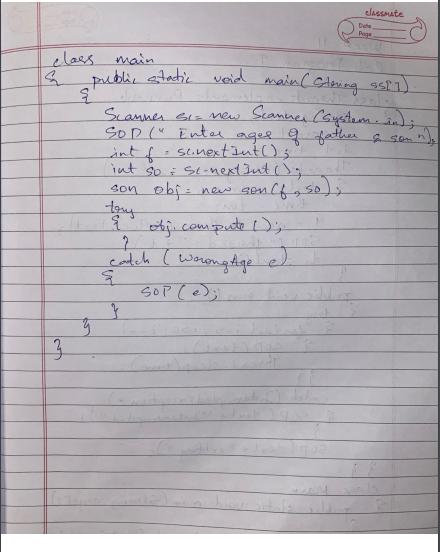 classmate
Date
Page
class main
{ public static void main(String ss[])
{
Scanner sc = new Scanner(System.in);
SOP(" Enter ages of father & son ");
int f = sc.nextInt();
int so = sc.nextInt();
son obj = new son(f, so);
try
{ obj.compute();
}
catch ( WrongAge e)
{
SOP(e);
}
}
}